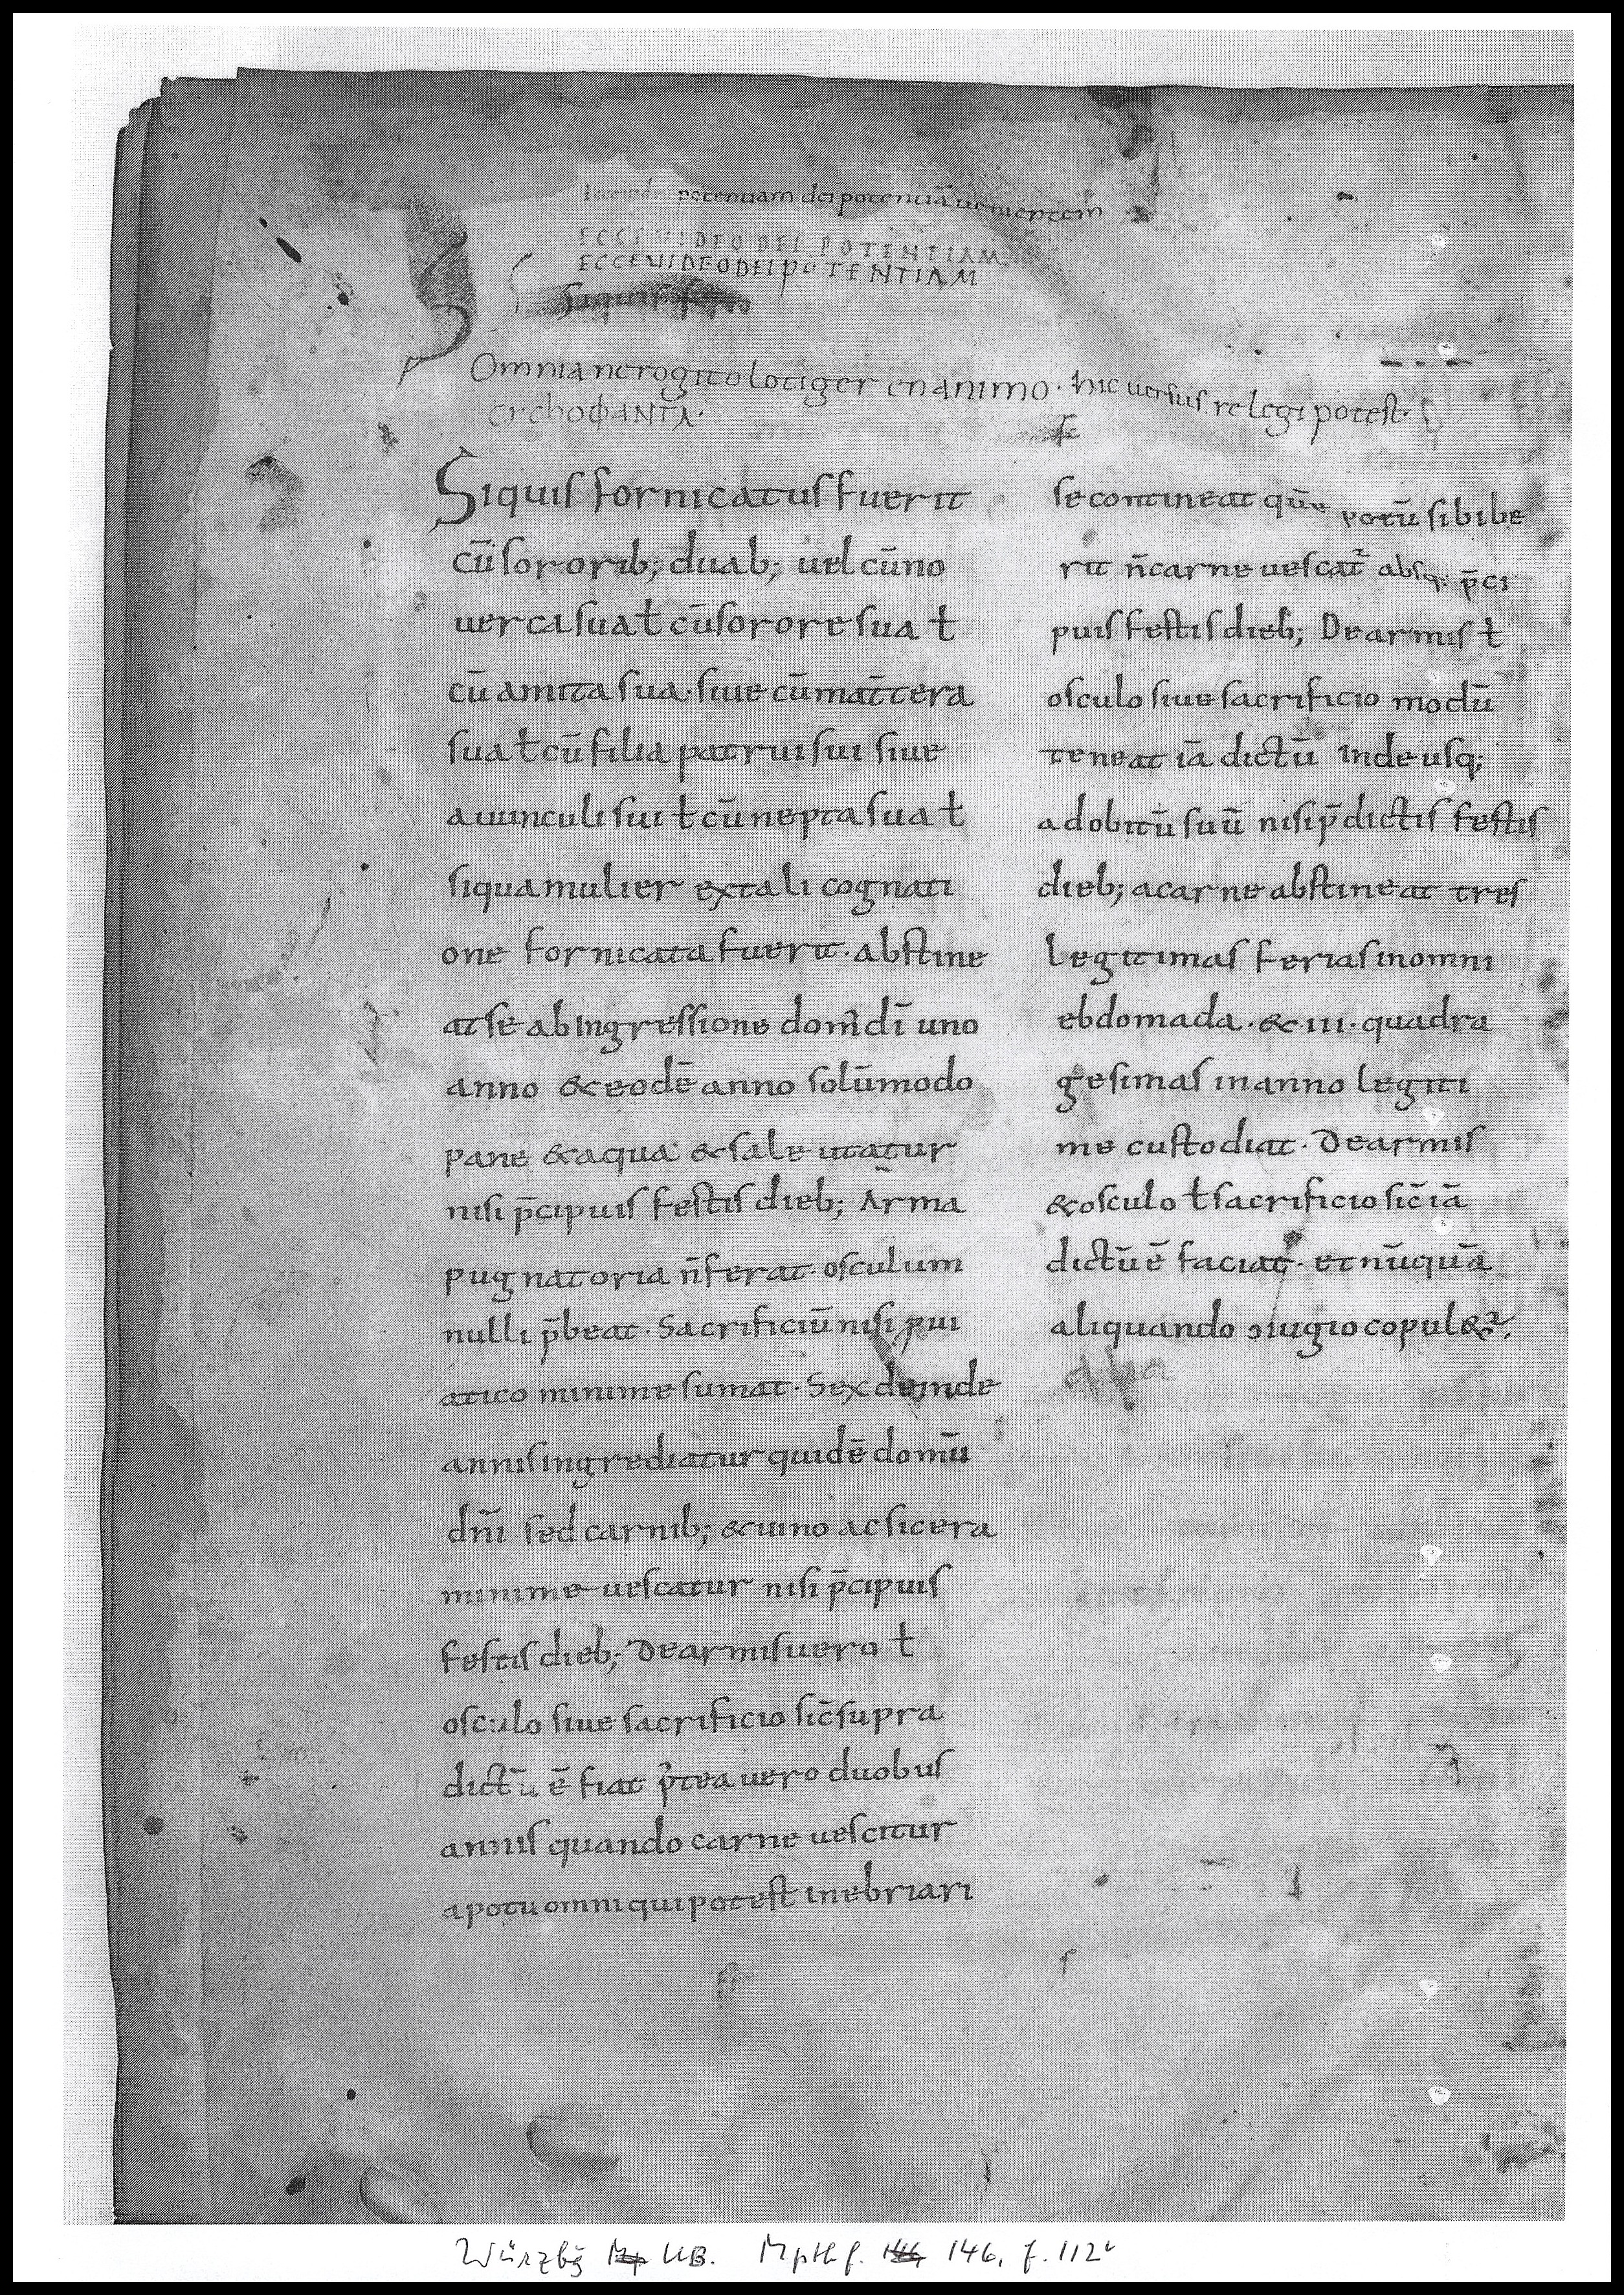 potentiam dei potentiā uenientem
ECCE VIDEO DEI POTENTIAM
ECCEVIDEODEIPOTENTIAM
Siquis
Omnia nerogito lotiger en animo · hic uersus relegi potest ·
Siquis fornicatus fuerit
cū sororib; duab; uel cū no
uerca sua ł cū sorore sua ł
cū amita sua · siue cū mat̄tera
sua ł cū filia patrui sui siue
auunculi sui ł cū nepta sua ł
siqua mulier ex tali cognati
one fornicata fuerit · abstine
at se ab ingressione dom̄ dī uno
anno & eodē anno solūmodo
pane & aqua & sale utatur
nisi p̄cipuis festis dieb; Arma
pugnatoria n̄ ferat · osculum
nulli p̄beat · Sacrificiū nisi p ui
atico minime sumat · Sex deinde
annis ingrediatur quidē domū
dn̄i sed carnib; & uino ac sicera
minime uescatur nisi p̄cipuis
festis dieb; De armis uero ł
osculo siue sacrificio sic̄ supra
dictū ē fiat p̄tea uero duobus
annis quando carne uescitur
a potu omni qui potest inebriari
se contineat potū sibi bibe
rit n̄ carne uescat̄ absq; p̄ci
puis festis dieb; De armis ł
osculo siue sacrificio modū
teneat iā dictū inde usq;
ad obitū suū nisi p̄dictis festis
dieb; a carne abstineat tres
legitimas ferias in omni
ebdomada · & · III · quadra
gesimas in anno legiti
me custodiat · De armis
& osculo ł sacrificio sic̄ iā
dictū ē faciat · et nūquā
aliquando ɔiugio copul&ur
Würzbg UB. Mpthf. 146, f. 112v